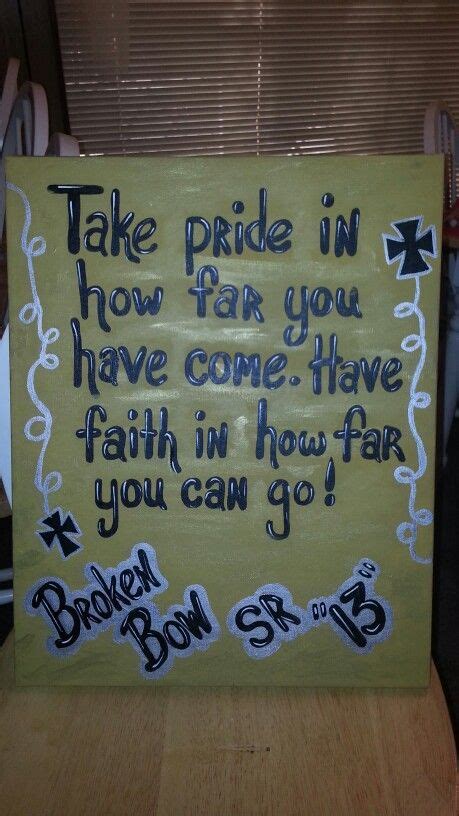 Take pride in
how far you
have come. Have
faith in how far
you can go!
Broken
Bow SR "13"